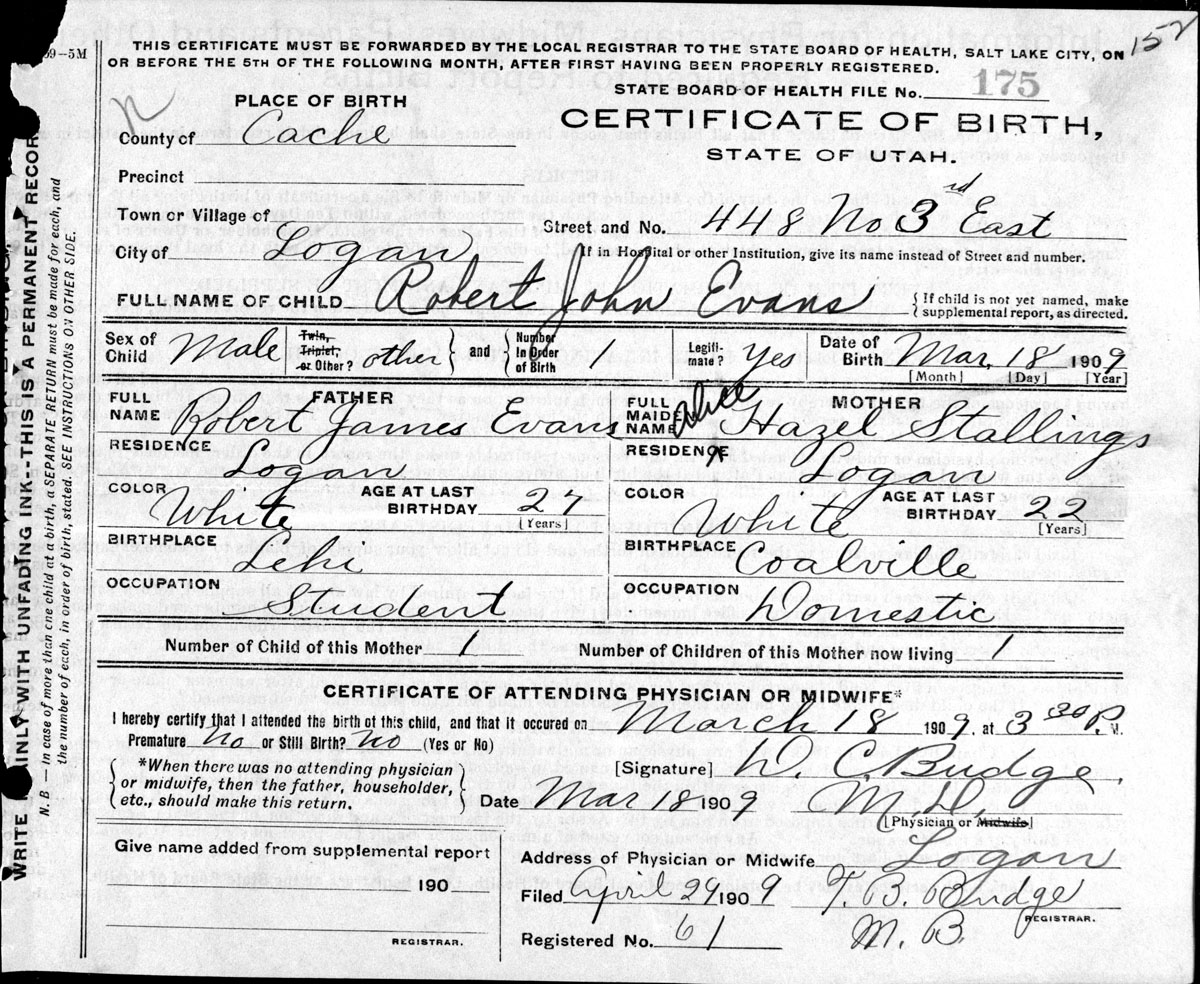 152
09–5M
THIS CERTIFICATE MUST BE FORWARDED BY THE LOCAL REGISTRAR TO THE STATE BOARD OF HEALTH, SALT LAKE CITY, ON
OR BEFORE THE 5TH OF THE FOLLOWING MONTH, AFTER FIRST HAVING BEEN PROPERLY REGISTERED.
STATE BOARD OF HEALTH FILE No. 175
PLACE OF BIRTH
CERTIFICATE OF BIRTH,
STATE OF UTAH.
County of Cache
Precinct
Town or Village of
Street and No. 448 No 3rd East
City of Logan
If in Hospital or other Institution, give its name instead of Street and number.
FULL NAME OF CHILD Robert John Evans
{If child is not yet named, make
supplemental report, as directed.
Sex of Child Male
Twin, Triplet, or Other? other } and { Number In Order of Birth 1
Legitimate? Yes
Date of Birth Mar. 18 1909
[Month] [Day] [Year]
FATHER
FULL NAME Robert James Evans
RESIDENCE Logan
COLOR White
AGE AT LAST BIRTHDAY 27
[Years]
BIRTHPLACE Lehi
OCCUPATION Student
MOTHER
FULL MAIDEN NAME Alice Hazel Stallings
RESIDENCE Logan
COLOR White
AGE AT LAST BIRTHDAY 22
[Years]
BIRTHPLACE Coalville
OCCUPATION Domestic
Number of Child of this Mother 1
Number of Children of this Mother now living 1
CERTIFICATE OF ATTENDING PHYSICIAN OR MIDWIFE*
I hereby certify that I attended the birth of this child, and that it occured on March 18 1909. at 3 30 P. M.
Premature No or Still Birth? No (Yes or No)
{*When there was no attending physician
or midwife, then the father, householder,
etc., should make this return.}
[Signature] D. C. Budge.
Date Mar 18 1909 M.D.
[Physician or Midwife]
Give name added from supplemental report
190
REGISTRAR.
Address of Physician or Midwife Logan
Filed April 29 1909 T. B. Budge
REGISTRAR.
Registered No. 61 M. B.
WRITE PLAINLY WITH UNFADING INK–THIS IS A PERMANENT RECORD
N. B.—In case of more than one child at a birth, a SEPARATE RETURN must be made for each, and
the number of each, in order of birth, stated. SEE INSTRUCTIONS ON OTHER SIDE.